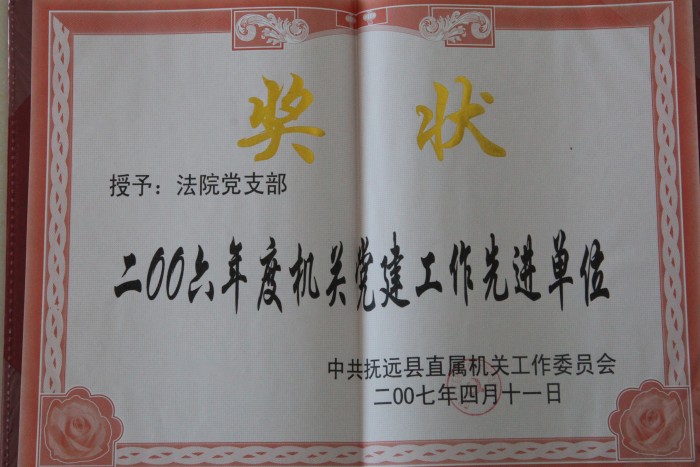 奖状
授予：法院党支部
二00六年度机关党建工作先进单位
中共抚远县直属机关工作委员会
二00七年四月十一日